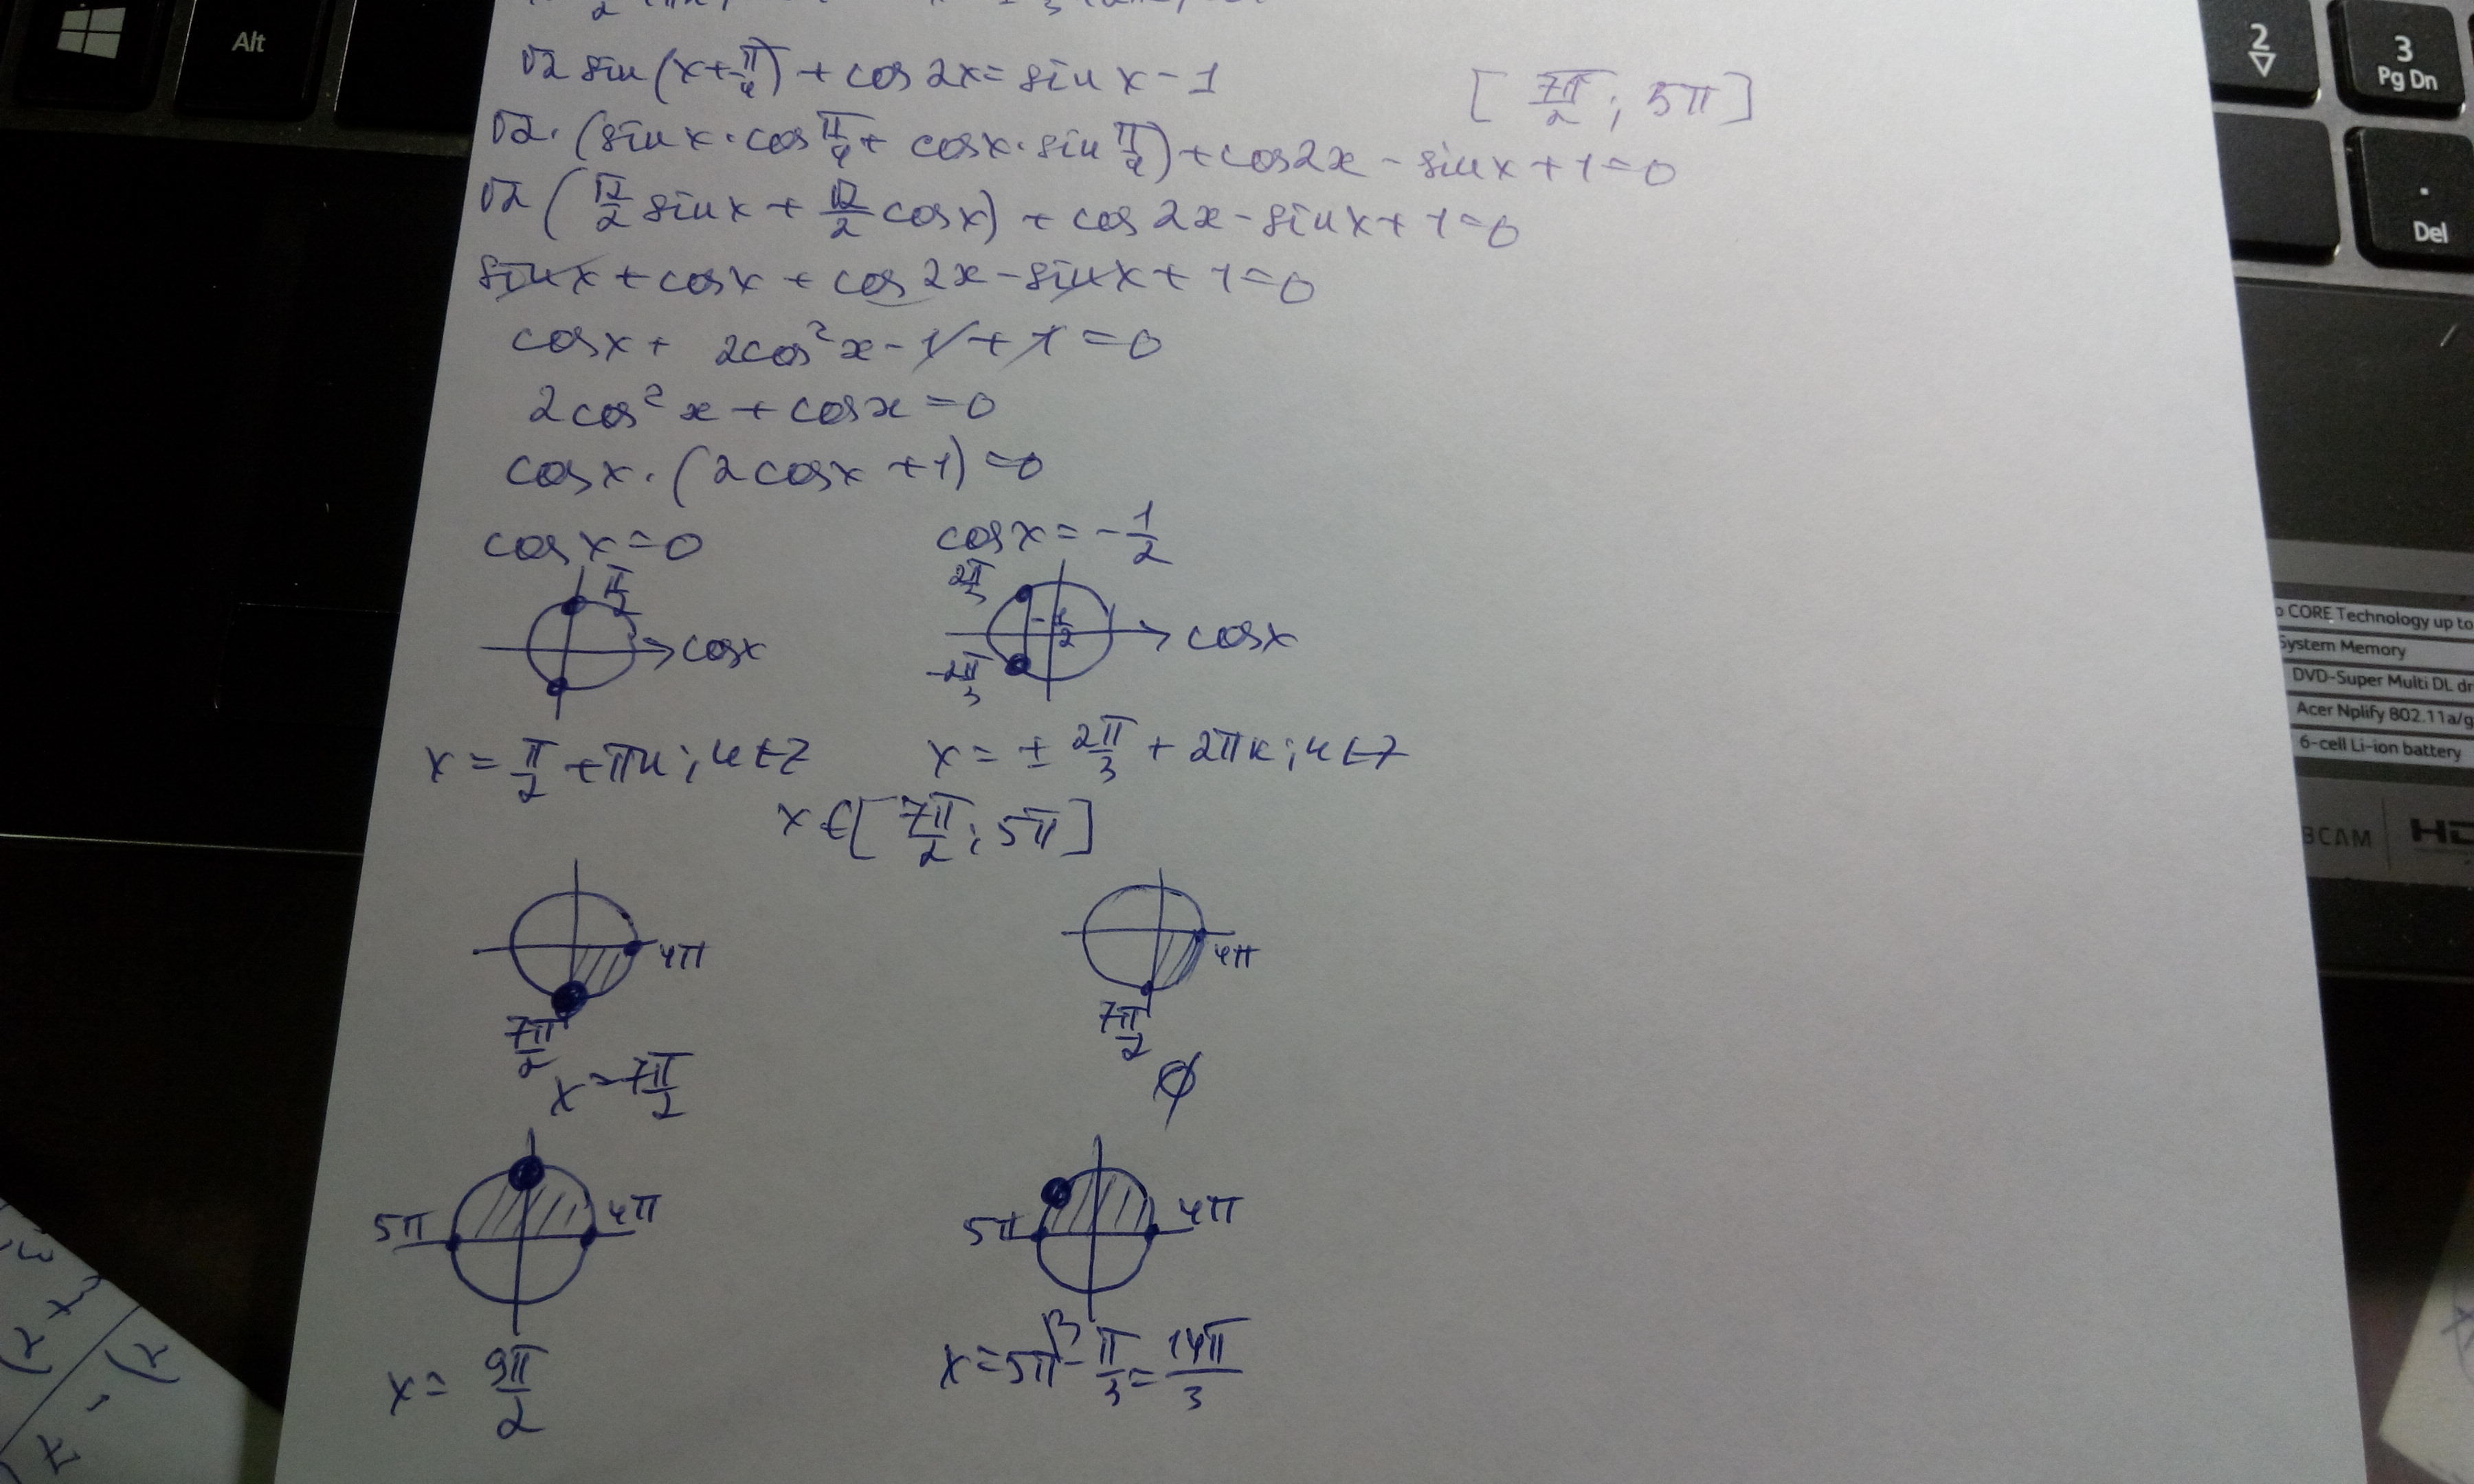 Alt
2
3
Pg Dn
.
Del
√2 sin(x+π/4) + cos 2x = sin x - 1
[7π/2; 5π]
√2·(sin x·cos π/4 + cos x·sin π/4) + cos 2x - sin x + 1 = 0
√2(√2/2 sin x + √2/2 cos x) + cos 2x - sin x + 1 = 0
sin x + cos x + cos 2x - sin x + 1 = 0
cos x + 2cos² x - 1 + 1 = 0
2cos² x + cos x = 0
cos x·(2cos x + 1) = 0
cos x = 0
cos x = -1/2
π/2
cos x
2π/3
-1/2
-2π/3
cos x
x = π/2 + πk; k∈Z
x = ± 2π/3 + 2πk; k∈Z
x ∈ [7π/2; 5π]
4π
7π/2
x = 7π/2
4π
7π/2
∅
5π
4π
x = 9π/2
5π
4π
x = 5π - π/3 = 14π/3
CORE Technology up to
System Memory
DVD-Super Multi DL
Acer Nplify 802.11a/g
6-cell Li-ion battery
CAM